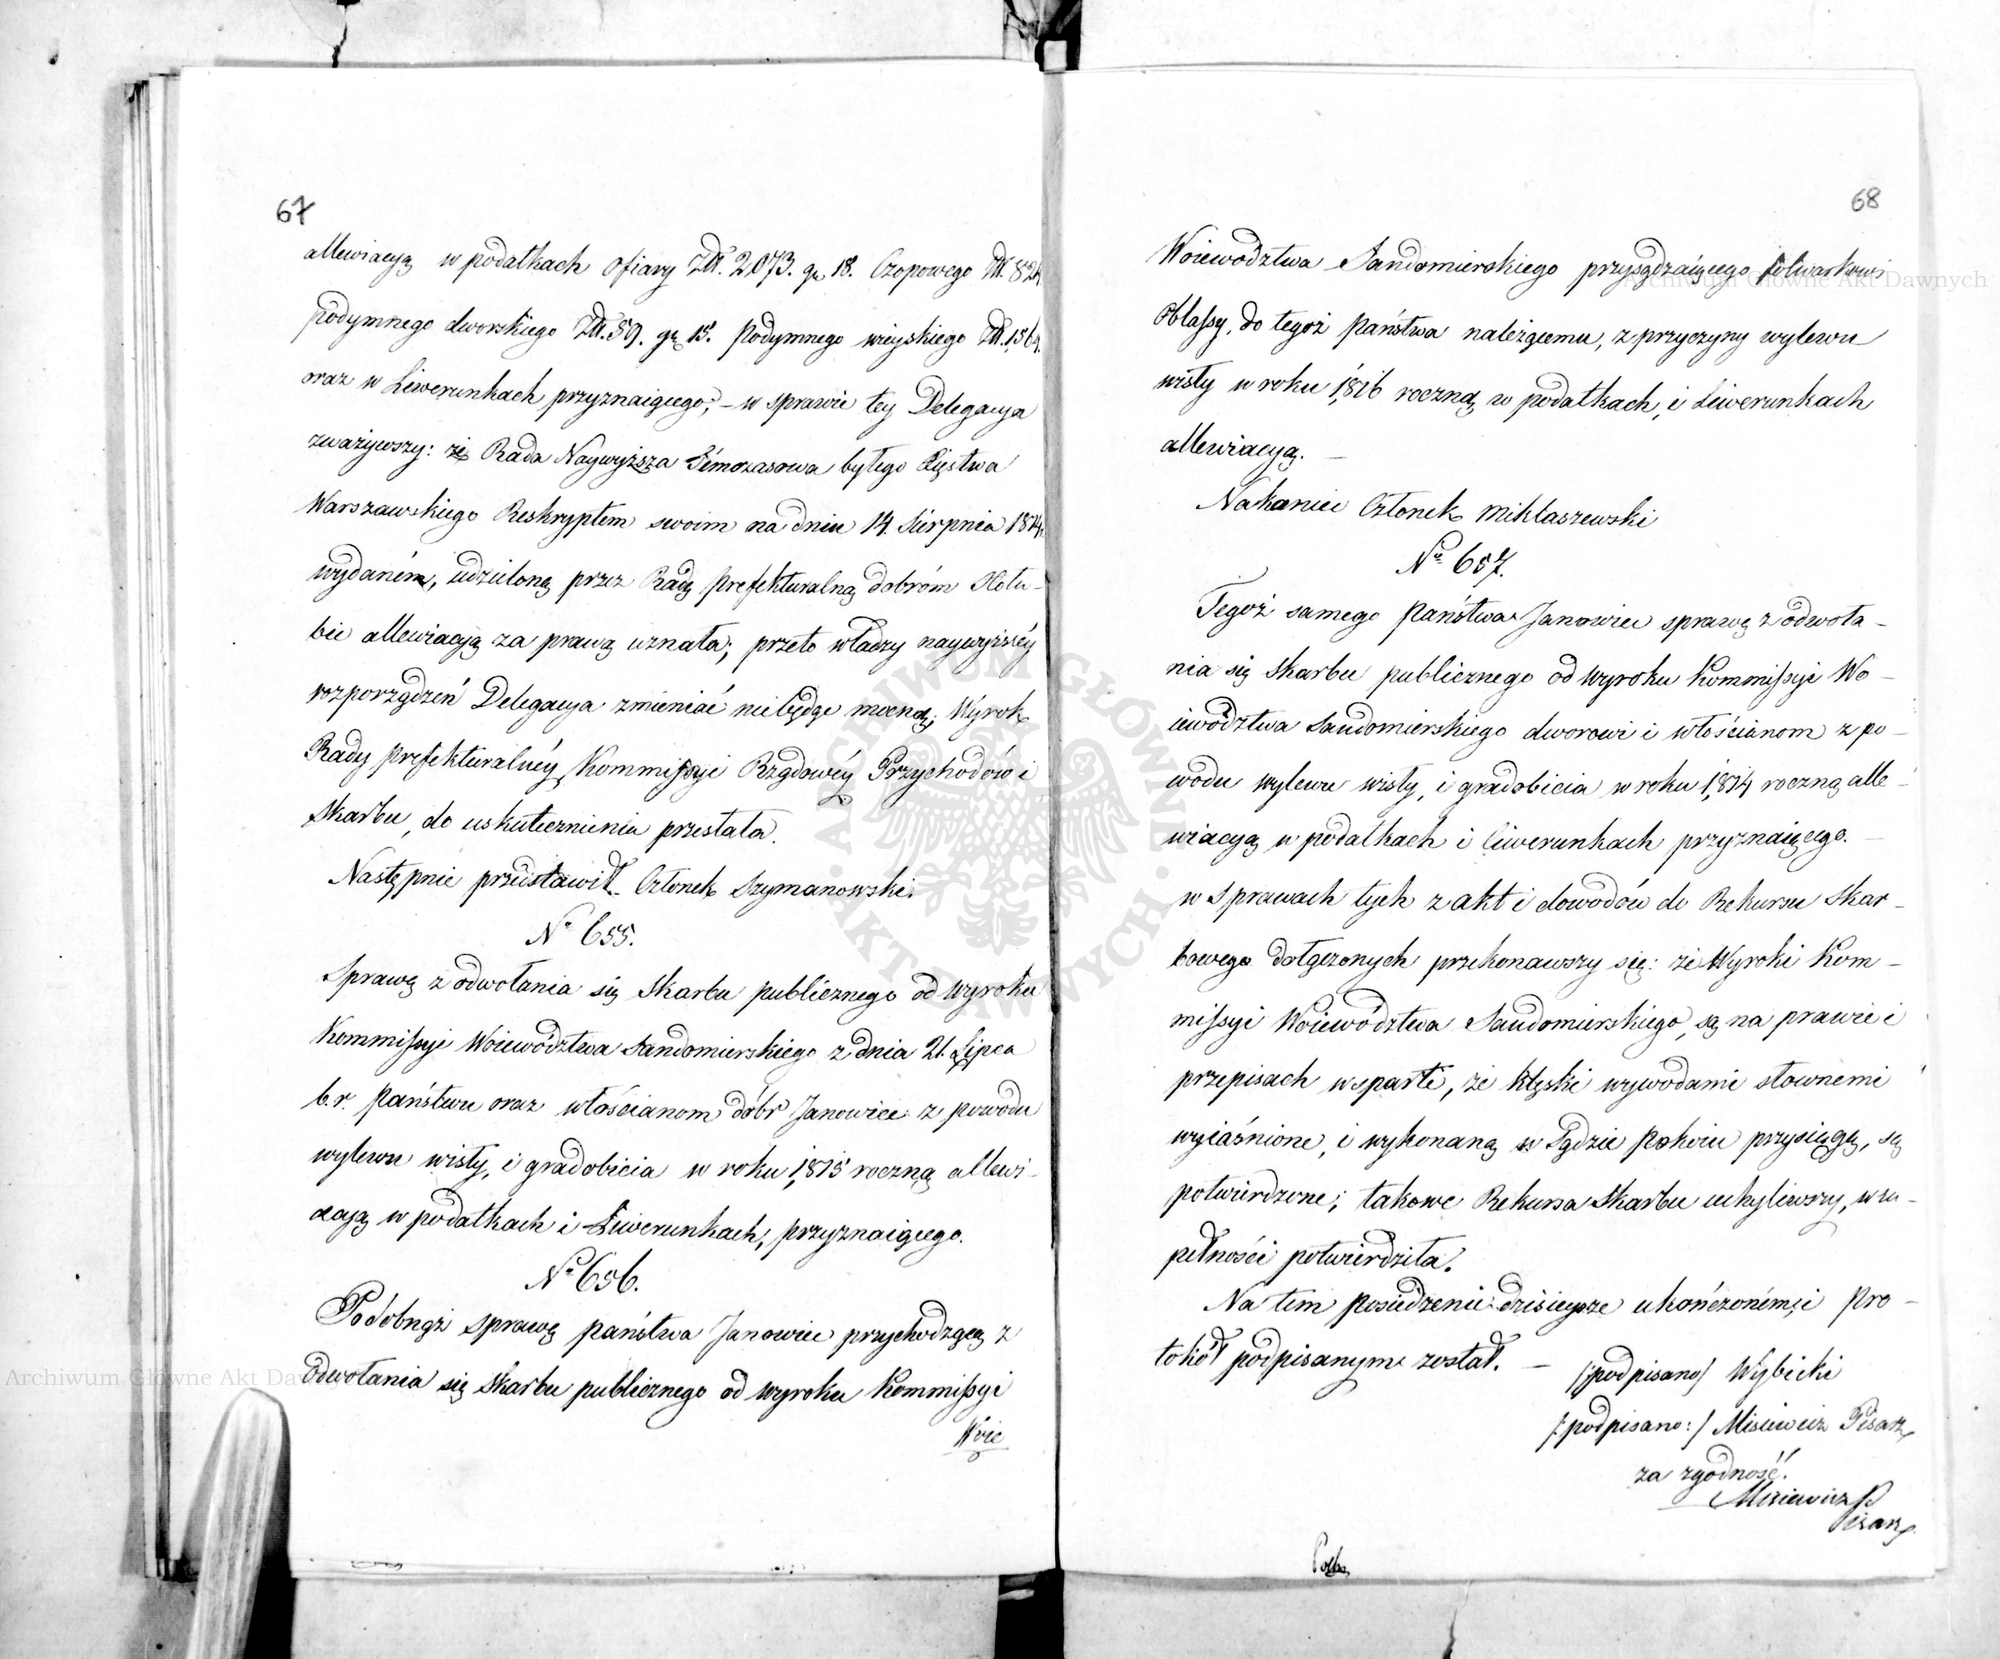 67
allewiacyą w podatkach ofiary Złł. 2,073. gr 18. Czopowego Złł. 824
podymnego dworskiego Złł. 59. gr 15. Podymnego wieyskiego Złł. 1,564.
oraz w Liwerunkach przyznaiącego; – w sprawie tey Delegacya
zważywszy: że Rada Naywyższa Tymczasowa byłego Xięstwa
Warszawskiego Reskryptem swoim na dniu 14. Sierpnia 1814.
wydaném, udzieloną przez Radę Prefekturalną dobróm Hołu-
bie allewiacyą za prawą uznała; przeto władzy naywyższéy
rozporządzeń Delegacya zmieniać nie będąc mocną; Wyrok
Rady Prefekturalnéy, Kommissyi Rządowéy Przychodów i
Skarbu, do uskutecznienia przesłała.
Następnie przedstawił Członek Szymanowski.
No 655.
Sprawę z odwołania się Skarbu publicznego od wyroku
Kommissyi Woiewództwa Sandomierskiego z dnia 21. Lipca
b.r. Państwu oraz włościanom dóbr Janowiec z powodu
wylewu wisły, i gradobicia w roku 1,815 roczną allewi-
acyą w podatkach i Liwerunkach, przyznaiącego.
No 656.
Podobnąż sprawę państwa Janowiec przychodzącą z
odwołania się Skarbu publicznego od wyroku Kommissyi
Woie
68
Woiewództwa Sandomierskiego przysądzaiącego folwarkowi
Oblassy, do tegoż Państwa należącemu, z przyczyny wylewu
wisły w roku 1,816 roczną w podatkach, i Liwerunkach
allewiacyą. –
Nakoniec Członek Miklaszewski
No 657.
Tegoż samego Państwa Janowiec sprawę z odwoła-
nia się Skarbu publicznego od wyroku Kommissyi Wo-
iewództwa Sandomierskiego dworowi i włościanom z po-
wodu wylewu wisły, i gradobicia w roku 1,814 roczną alle-
wiacyą w podatkach i liwerunkach przyznaiącego. –
w sprawach tych z akt i dowodów do Rekursu Skar-
bowego dołączonych przekonawszy się: że Wyroki Kom-
missyi Woiewództwa Sandomierskiego, są na prawie i
przepisach wsparte, że klęski wywodami słownemi
wyiaśnione, i wykonaną w Sądzie Pokoiu przysięgą, są
potwierdzone; takowe Rekursa Skarbu uchyliwszy, w zu-
pełności potwierdziła.
Na tém posiedzenie dzisieysze ukończoném, i Pro-
tokół podpisanym został. –
/:podpisano/ Wybicki
/:podpisano:/ Misiewicz Pisarz
za zgodność.
Misiewicz P
Pisarz
Archiwum Główne Akt Dawnych
Archiwum Główne Akt Dawnych
ARCHIWUM GŁÓWNE AKT DAWNYCH